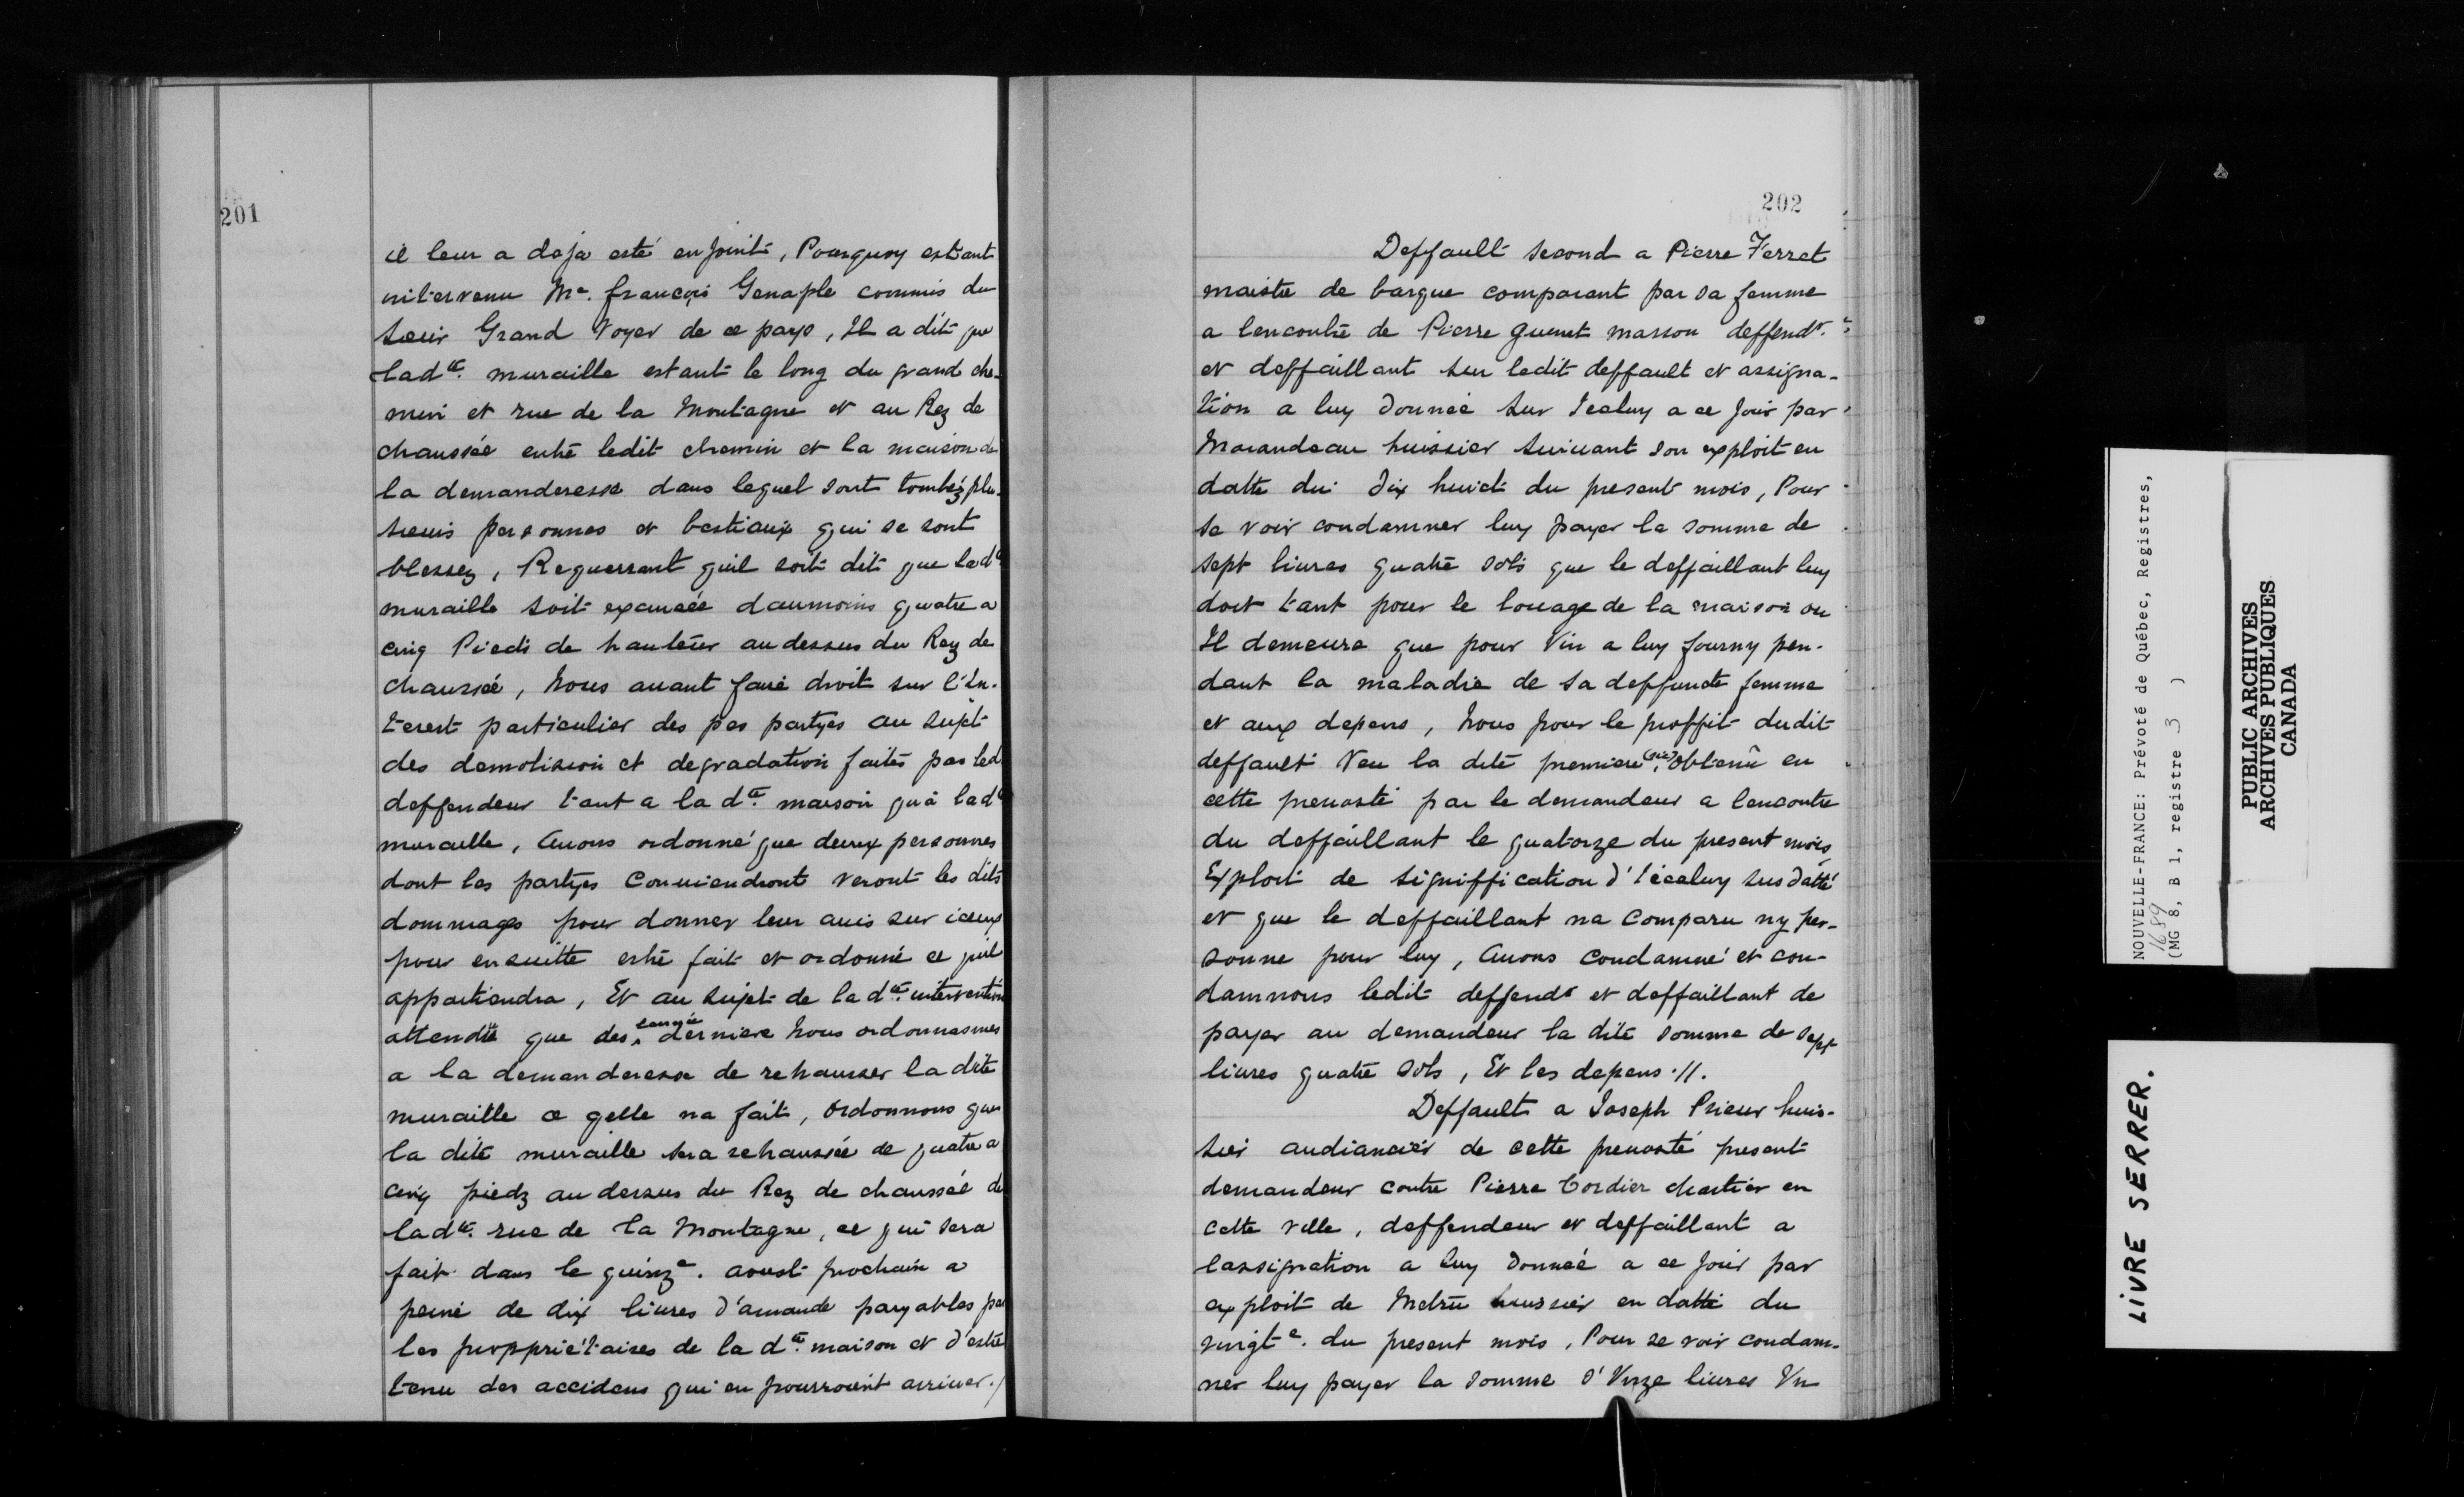 201
il leur a deja esté enjoint, Pourquoy estant
intervenu Me. françois Genaple commis du
Sieur Grand Voyer de ce pays, Il a dit que
ladte. muraille estant le long du grand che-
min et rue de la Montagne et au Rez de
chaussée entre ledit chemin et la maison de
la demanderesse dans lequel sont tombéz plu-
sieurs personnes et bestiaux qui se sont
blessez, Requerrant quil soit dit que lade
muraille soit exaucée daumoins quatre a
cinq Pieds de hauteur au dessus du Rez de
chaussée, Nous auant faire droit sur l'In-
terest particulier des pes partyes au sujet
des demolission et degradation faites par led
deffendeur tant a la dte. maison qu'à lade
muraille, Auons ordonné que deux personnes
dont les partyes Conuiendront veront les dits
dommages pour donner leur auis sur iceux
pour ensuitte estre fait et ordonné ce quil
appartiendra, Et au sujet de la dte. intervention
attendu que des l'année derniere Nous ordonnasmes
a la demanderesse de rehausser la dite
muraille ce qelle na fait, Ordonnons que
la dite muraille sera rehaussée de quatre a
cinq piedz au dessus du Rez de chaussée de
ladte. rue de la Montagne, ce qui sera
fait dans le quinze. aoust prochain a
peine de dix liures d'amande payables par
les proppriétaires de la dte. maison et d'estre
tenu des accidens qui en pourroient arriuer./
202
Deffault second a Pierre Ferret
maistre de barque comparant par sa femme
a lencontre de Pierre guenet masson deffendr.
et deffaillant sur ledit deffault et assigna-
tion a luy donnée sur Iceluy a ce jour par
Marandeau huissier suiuant son exploit en
datte du dix huict du present mois, Pour
se voir condamner luy payer la somme de
sept liures quatre sols que le deffaillant luy
doit tant pour le louage de la maison ou
Il demeure que pour Vin a luy fourny pen-
dant la maladie de sa deffuncte femme
et aux depens, Nous pour le proffit dudit
deffault Veu la dite premiere (sic) obtenu en
cette preuosté par le demandeur a lencontre
du deffaillant le quatorze du present mois
Exploit de signiffication d'Iceluy susdatté
et que le deffaillant na Comparu ny per-
sonne pour luy, Auons condamné et con-
damnons ledit deffendr et deffaillant de
payer au demandeur la dite somme de sept
liures quatre sols, Et les depens .//.
Deffault a Joseph Prieur huis-
sier audiancier de cette preuosté present
demandeur contre Pierre Cordier chartier en
cette ville, deffendeur et deffaillant a
lassignation a luy donnée a ce jour par
exploit de Metru huissier en datte du
vingte. du present mois, Pour se voir condam-
ner luy payer la somme d'Vnze liures Vn
NOUVELLE-FRANCE: Prévoté de Québec, Registres,
1689
(MG 8, B 1, registre 3 )
PUBLIC ARCHIVES
ARCHIVES PUBLIQUES
CANADA
LIVRE SERRER.